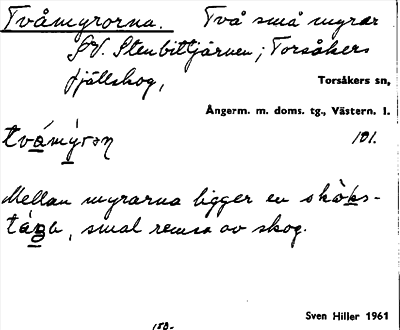 Tvåmyrorna. Två små myrar
SV. Stenbittjärnen; Torsåkers
fjällskog,
Torsåkers sn,
Ångerm. m. doms. tg., Västern. l.
tvámýrɔn 101.
Mellan myrarna ligger en skòks-
tága, smal remsa av skog.
Sven Hiller 1961